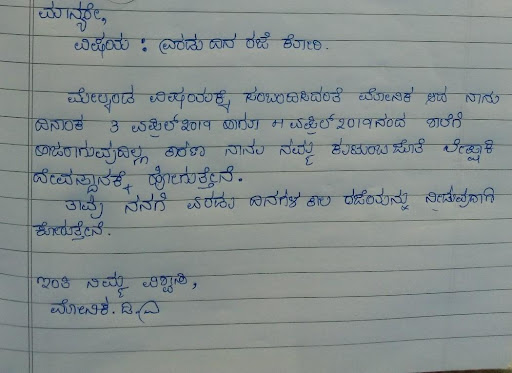 ಮಾನ್ಯರೇ,
ವಿಷಯ : ಎರಡು ದಿನ ರಜೆ ಕೋರಿ.
ಮೇಲ್ಕಂಡ ವಿಷಯಕ್ಕೆ ಸಂಬಂದಿಸಿದಂತೆ ಮೋನಿಕ ಆದ ನಾನು
ದಿನಾಂಕ 3 ಏಪ್ರಿಲ್ 2019 ಹಾಗೂ 4 ಏಪ್ರಿಲ್ 2019 ನಂದ ಶಾಲೆಗೆ
ಹಾಜರಾಗುವುದಿಲ್ಲ ಕಾರಣ ನಾನು ನಮ್ಮ ಕುಟುಂಬ ಜೊತೆ
ದೇವಸ್ಥಾನಕ್ಕೆ ಹೋಗುತ್ತೇನೆ.
ತಾವು ನನಗೆ ಎರಡು ದಿನಗಳ ಕಾಲ ರಜೆಯನ್ನು ನೀಡುವುದಾಗಿ
ಕೋರುತ್ತೇನೆ.
ಇಂತಿ ನಿಮ್ಮ ವಿಶ್ವಾಸಿ,
ಮೋನಿಕ. ಡಿ.ವಿ